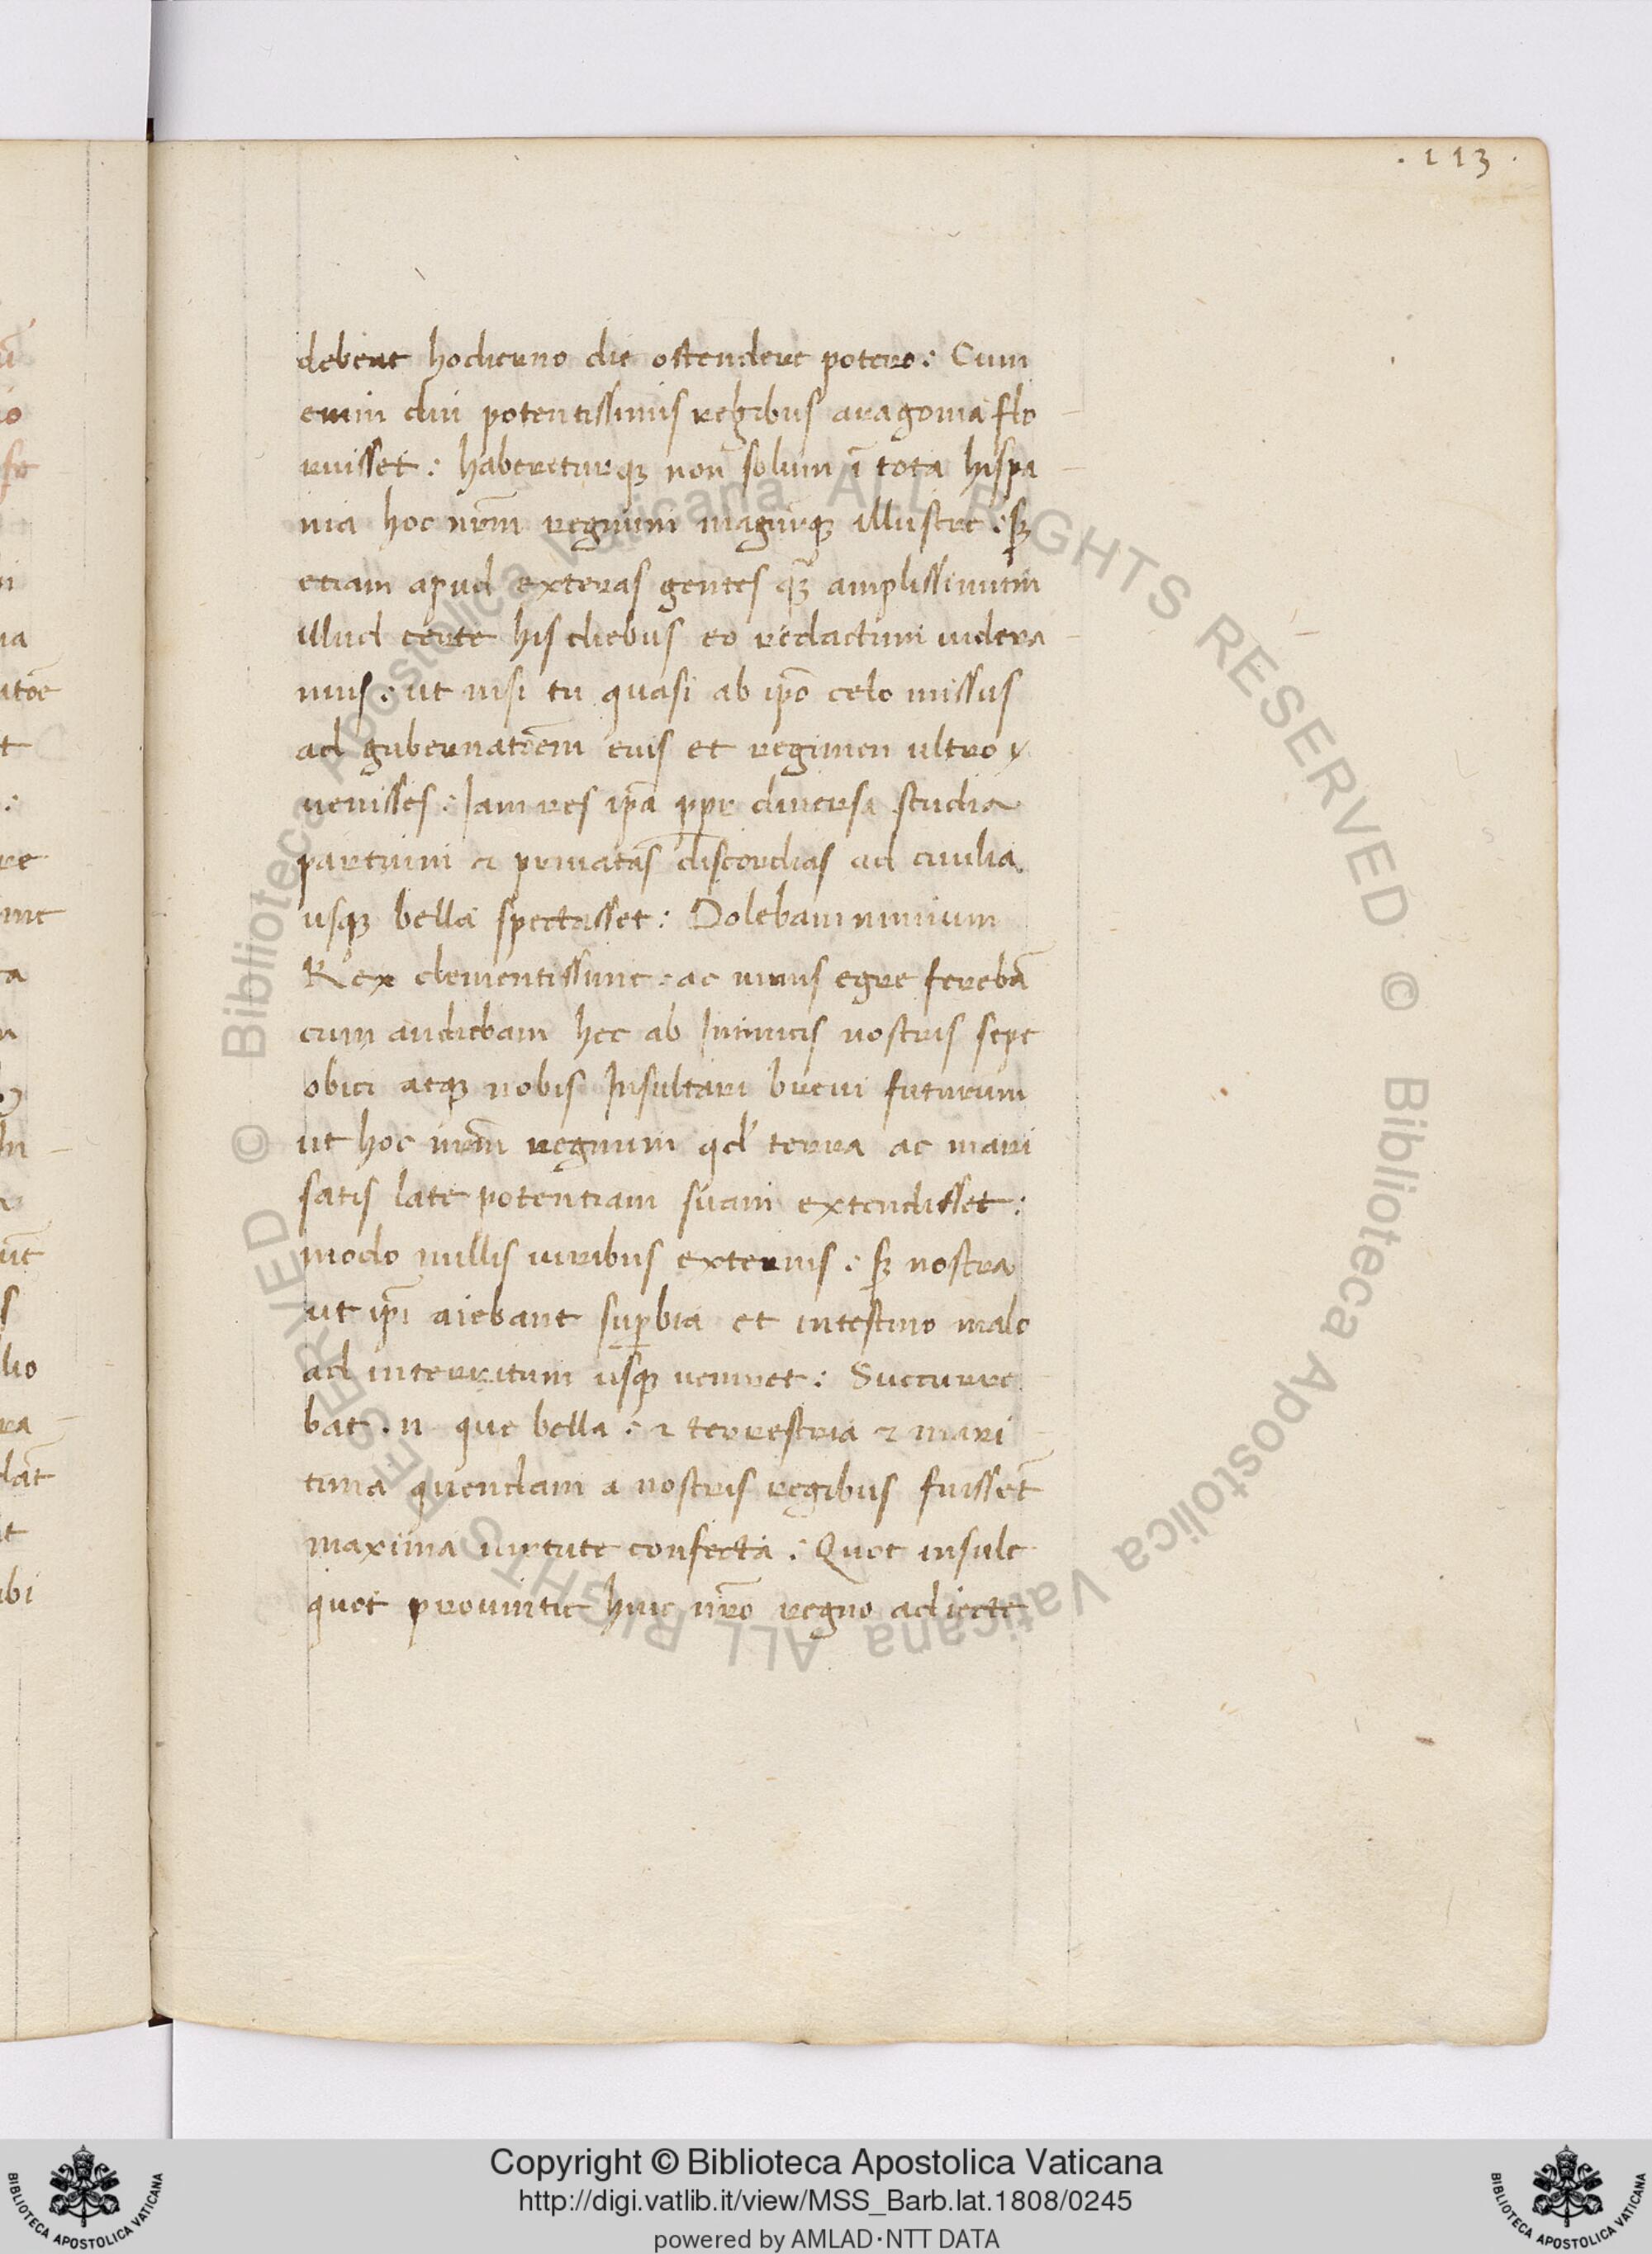 .113.
debent hodierno die ostendere potero: Cum
enim diu potentissimis regibus aragonia flo
ruisset: habereturq; non solum ī tota hispa
nia hoc nrm̄ regnum magnūq; illustre: sȝ
etiam apud exteras gentes q̄ȝ amplissimum
illud certe his diebus eo redactum uidera
mus: ut nisi tu quasi ab ip̄o celo missus
ad gubernatōem eius et regimen ultro
uenisses: Iam res ip̄a ppr̄ diuersa studia
partium & priuatas discordias ad ciuilia
usq; bella spectasset: Dolebam nimium
Rex clementissime: ac nimis egre ferebā
cum audiebam hec ab Inimicis nostris sepe
obici atq; nobis Insultari breui futurum
ut hoc nrm̄ regnum qd' terra ac mari
satis late potentiam suam extendisset:
modo nullis uiribus externis: sȝ nostra
ut ip̄i aiebant sup̱bia et intestino malo
ad interritum usq; ueniret: Succurre
bat .n. que bella: & terrestria & mari
tima quondam a nostris regibus fuissēt
maxima uirtute confecta: Quot insule
quot prouintie huic nr̄o regno adiecte
Copyright © Biblioteca Apostolica Vaticana
http://digi.vatlib.it/view/MSS_Barb.lat.1808/0245
powered by AMLAD·NTT DATA
BIBLIOTECA APOSTOLICA VATICANA
BIBLIOTECA APOSTOLICA VATICANA
© Biblioteca Apostolica Vaticana ALL RIGHTS RESERVED
© Biblioteca Apostolica Vaticana ALL RIGHTS RESERVED